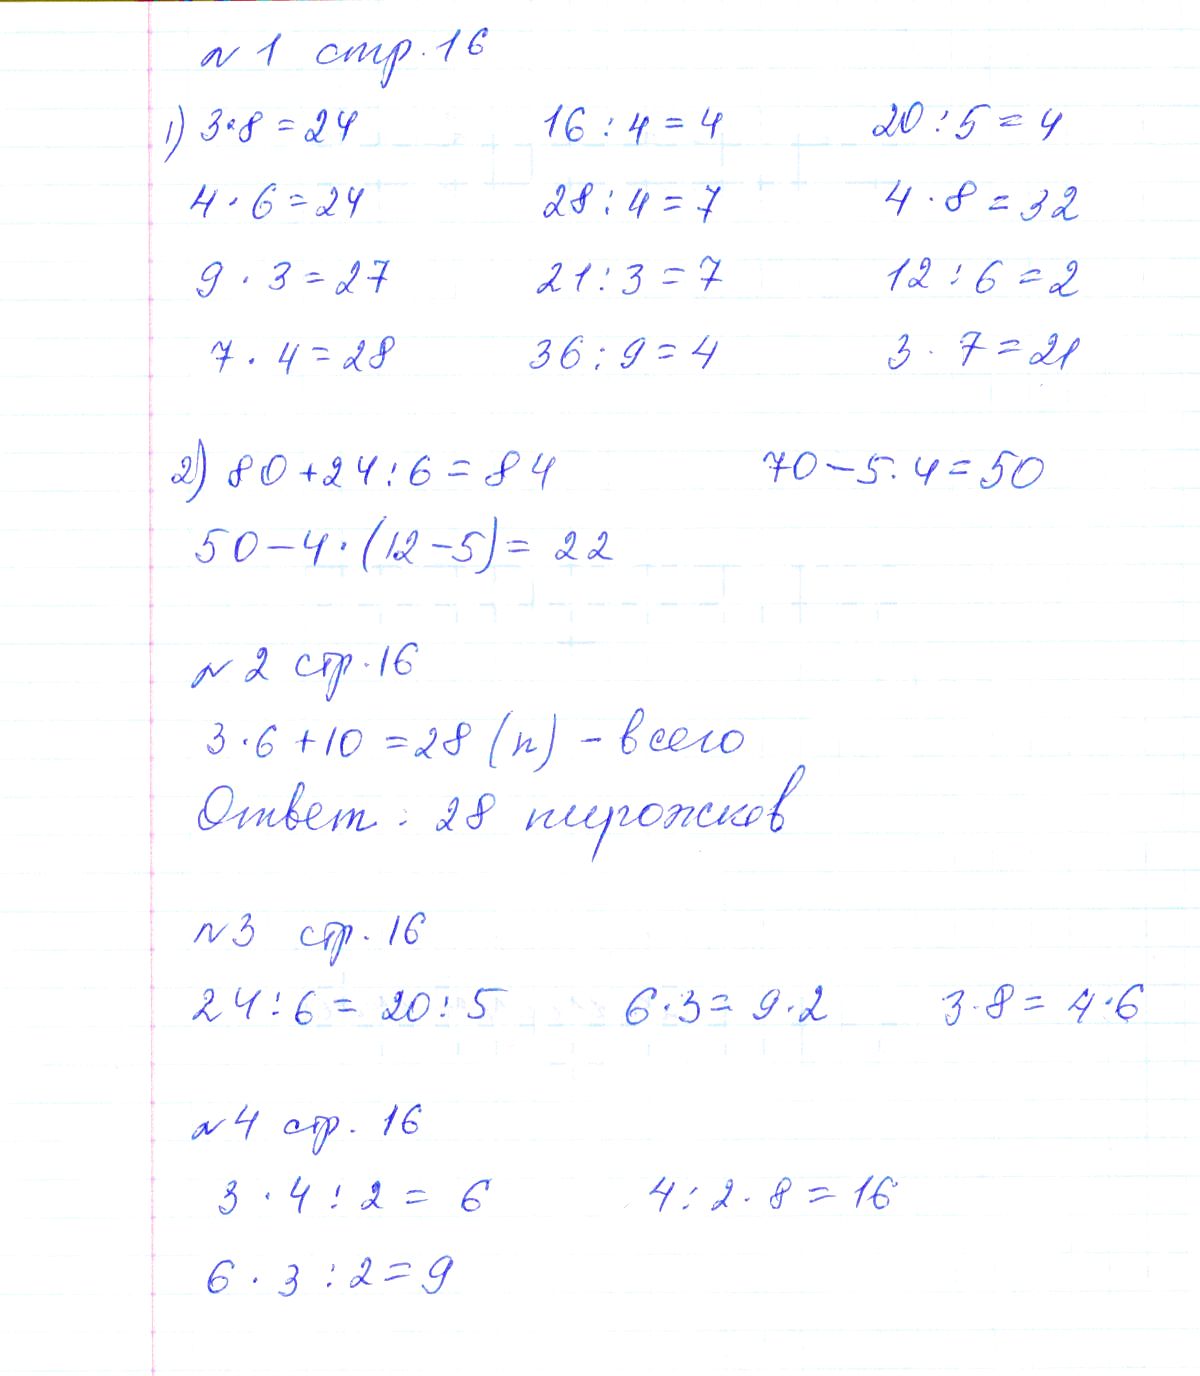 № 1 стр. 16
1) 3·8=24 16:4=4 20:5=4
4·6=24 28:4=7 4·8=32
9·3=27 21:3=7 12:6=2
7·4=28 36:9=4 3·7=21
2) 80+24:6=84 70-5·4=50
50-4·(12-5)=22
№ 2 стр. 16
3·6+10=28 (п) - всего
Ответ: 28 пирожков
№ 3 стр. 16
24:6=20:5 6·3=9·2 3·8=4·6
№ 4 стр. 16
3·4:2=6 4:2·8=16
6·3:2=9